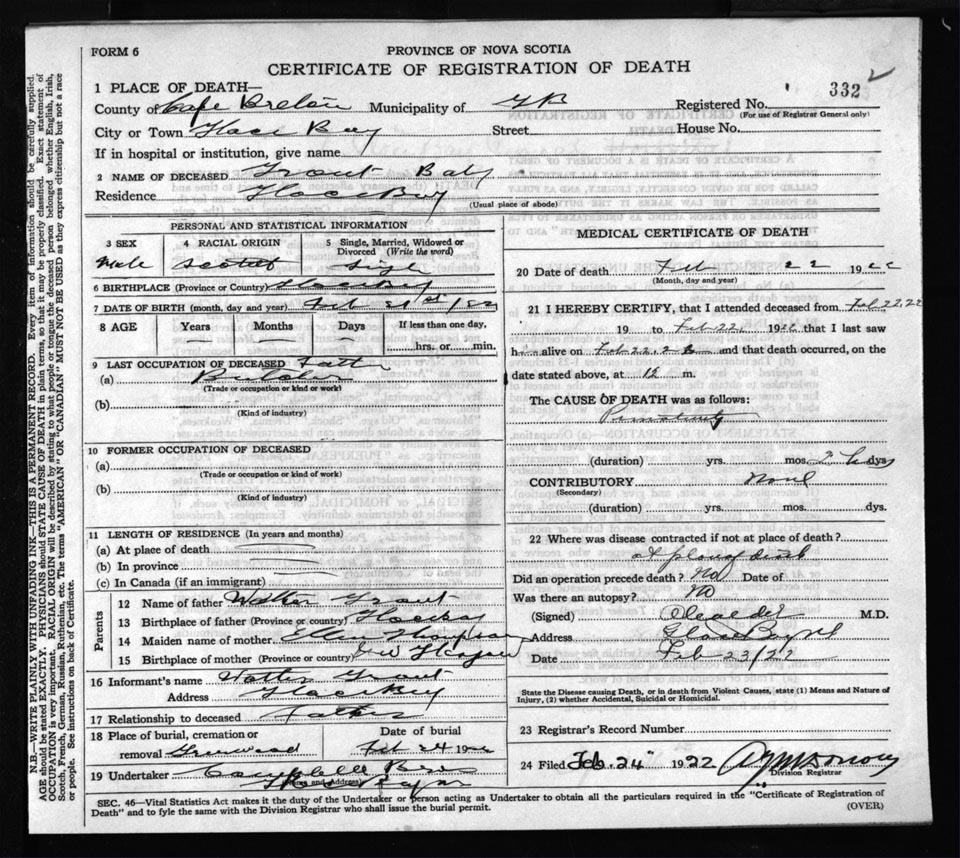 FORM 6
PROVINCE OF NOVA SCOTIA
CERTIFICATE OF REGISTRATION OF DEATH
332
1 PLACE OF DEATH—
County of Cape Breton Municipality of G B Registered No.
(For use of Registrar General only)
City or Town Glace Bay Street House No.
If in hospital or institution, give name
2 NAME OF DECEASED Grant Baby
Residence Glace Bay
(Usual place of abode)
PERSONAL AND STATISTICAL INFORMATION
3 SEX 4 RACIAL ORIGIN 5 Single, Married, Widowed or
Divorced (Write the word)
Male Scotch Single
6 BIRTHPLACE (Province or Country) Glace Bay
7 DATE OF BIRTH (month, day and year) Feb 21st / 22
8 AGE Years Months Days If less than one day,
hrs. or min.
9 LAST OCCUPATION OF DECEASED Father
(a)
(Trade or occupation or kind of work)
(b)
(Kind of industry)
10 FORMER OCCUPATION OF DECEASED
(a)
(Trade or occupation or kind of work)
(b)
(Kind of industry)
11 LENGTH OF RESIDENCE (In years and months)
(a) At place of death
(b) In province
(c) In Canada (if an immigrant)
Parents
12 Name of father Walter Grant
13 Birthplace of father (Province or country) Glace Bay
14 Maiden name of mother Ellen Thompson
15 Birthplace of mother (Province or country) New Glasgow
16 Informant's name Walter Grant
Address Glace Bay
17 Relationship to deceased Father
18 Place of burial, cremation or Date of burial
removal Greenwood Feb 24 1922
19 Undertaker Campbell Bros
(Name and Address)
Glace Bay NS
MEDICAL CERTIFICATE OF DEATH
20 Date of death Feb 22 1922
(Month, day and year)
21 I HEREBY CERTIFY, that I attended deceased from Feb 22, 22
19 to Feb 22, 1922 that I last saw
h alive on Feb 22, 22 and that death occurred, on the
date stated above, at 12 m.
The CAUSE OF DEATH was as follows:
Prematurity
(duration) yrs. mos. 2 dys
CONTRIBUTORY None
(Secondary)
(duration) yrs. mos. dys.
22 Where was disease contracted if not at place of death?
at place of death
Did an operation precede death? No Date of
Was there an autopsy? No
(Signed) M.D.
Address Glace Bay NS
Date Feb 23/22
State the Disease causing Death, or in death from Violent Causes, state (1) Means and Nature of
Injury, (2) whether Accidental, Suicidal or Homicidal.
23 Registrar's Record Number
24 Filed Feb. 24 1922
Division Registrar
SEC. 46—Vital Statistics Act makes it the duty of the Undertaker or person acting as Undertaker to obtain all the particulars required in the "Certificate of Registration of
Death" and to fyle the same with the Division Registrar who shall issue the burial permit. (OVER)
N.B.—WRITE PLAINLY WITH UNFADING INK—THIS IS A PERMANENT RECORD. Every item of information should be carefully supplied.
AGE should be stated EXACTLY. PHYSICIANS should STATE CAUSE OF DEATH in plain terms, so that it may be properly classified. Exact statement of
OCCUPATION is very important. RACIAL ORIGIN will be described by stating to what people or tongue the deceased person belonged whether English, Irish,
Scotch, French, German, Russian, Ruthenian, etc. The terms "AMERICAN" OR "CANADIAN" MUST NOT BE USED as they express citizenship but not a race
or people. See instructions on back of Certificate.